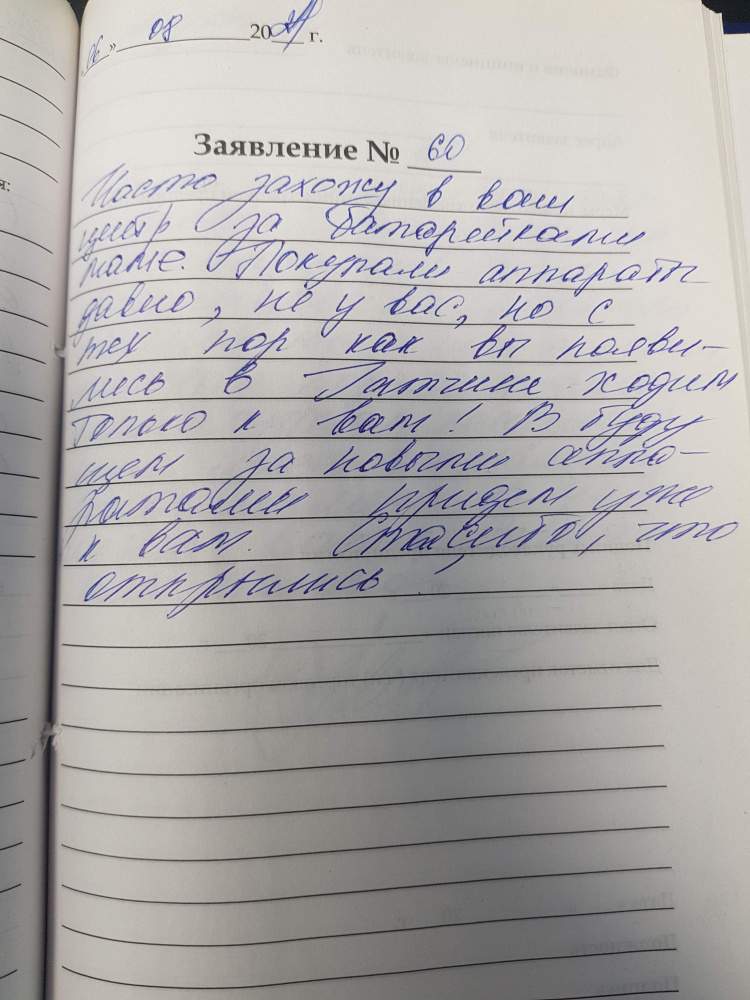 «06» 08 20 г.
Заявление № 60
Часто захожу в ваш
центр за батарейками
маме. Покупали аппараты
давно, не у вас, но с
тех пор как вы появи-
лись в Гатчине ходим
только к вам! В буду
щем за новыми аппа-
ратами придем уже
к вам. Спасибо, что
открылись!